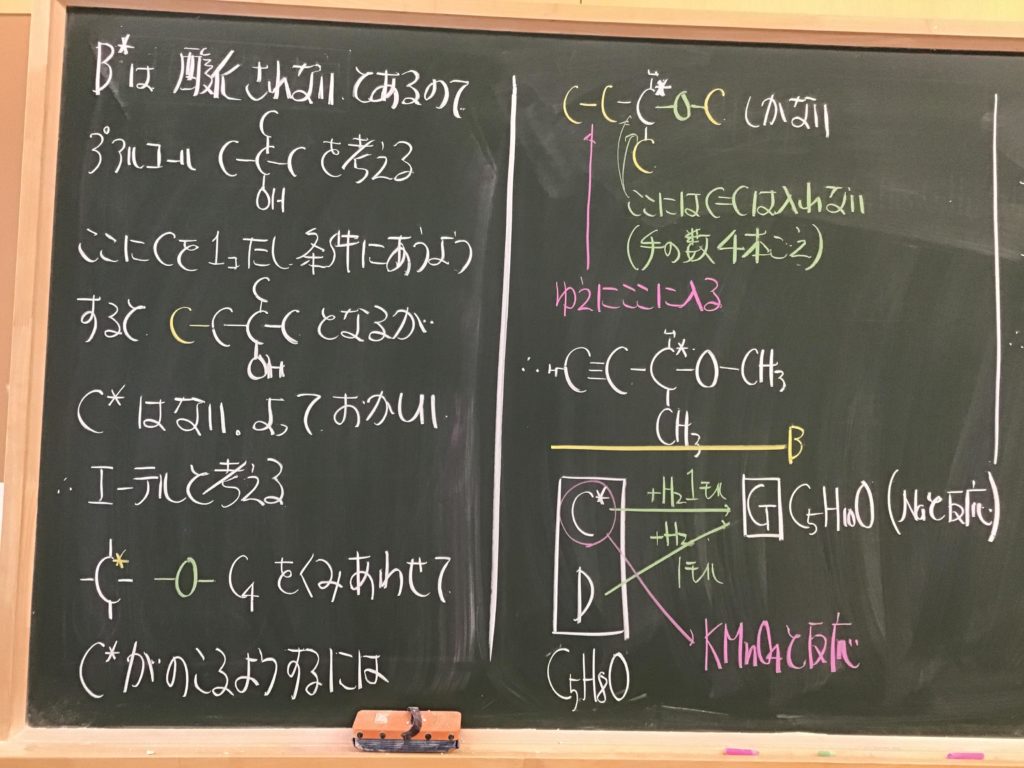 B*は酸化されないとあるので
3°アルコール C-C-C を考える
C
OH
ここにCを1コたし条件にあうよう
すると C-C-C-C となるが
C
OH
C*はない。よっておかしい
∴エーテルと考える
-C*- -O- C4 をくみあわせて
C*がのこるようするには
H
C-C-C*-O-C しかない
C
ここにはC=Cは入れない
(手の数4本ごえ)
ゆえにここに入る
H
∴H-C≡C-C*-O-CH3
CH3
B
C* +H2 1モル G C5H10O (Naと反応)
+H2
D 1モル
KMnO4と反応
C5H8O